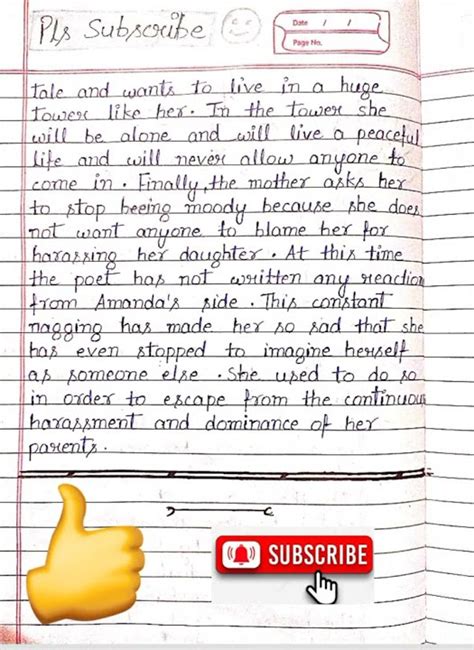 Pls Subscribe
Date / /
Page No.
tale and wants to live in a huge
tower like her. In the tower she
will be alone and will live a peaceful
life and will never allow anyone to
come in. Finally, the mother asks her
to stop beeing moody because she does
not want anyone to blame her for
harassing her daughter. At this time
the poet has not written any reaction
from Amanda's side. This constant
nagging has made her so sad that she
has even stopped to imagine herself
as someone else. She used to do so
in order to escape from the continuous
harassment and dominance of her
parents.
SUBSCRIBE